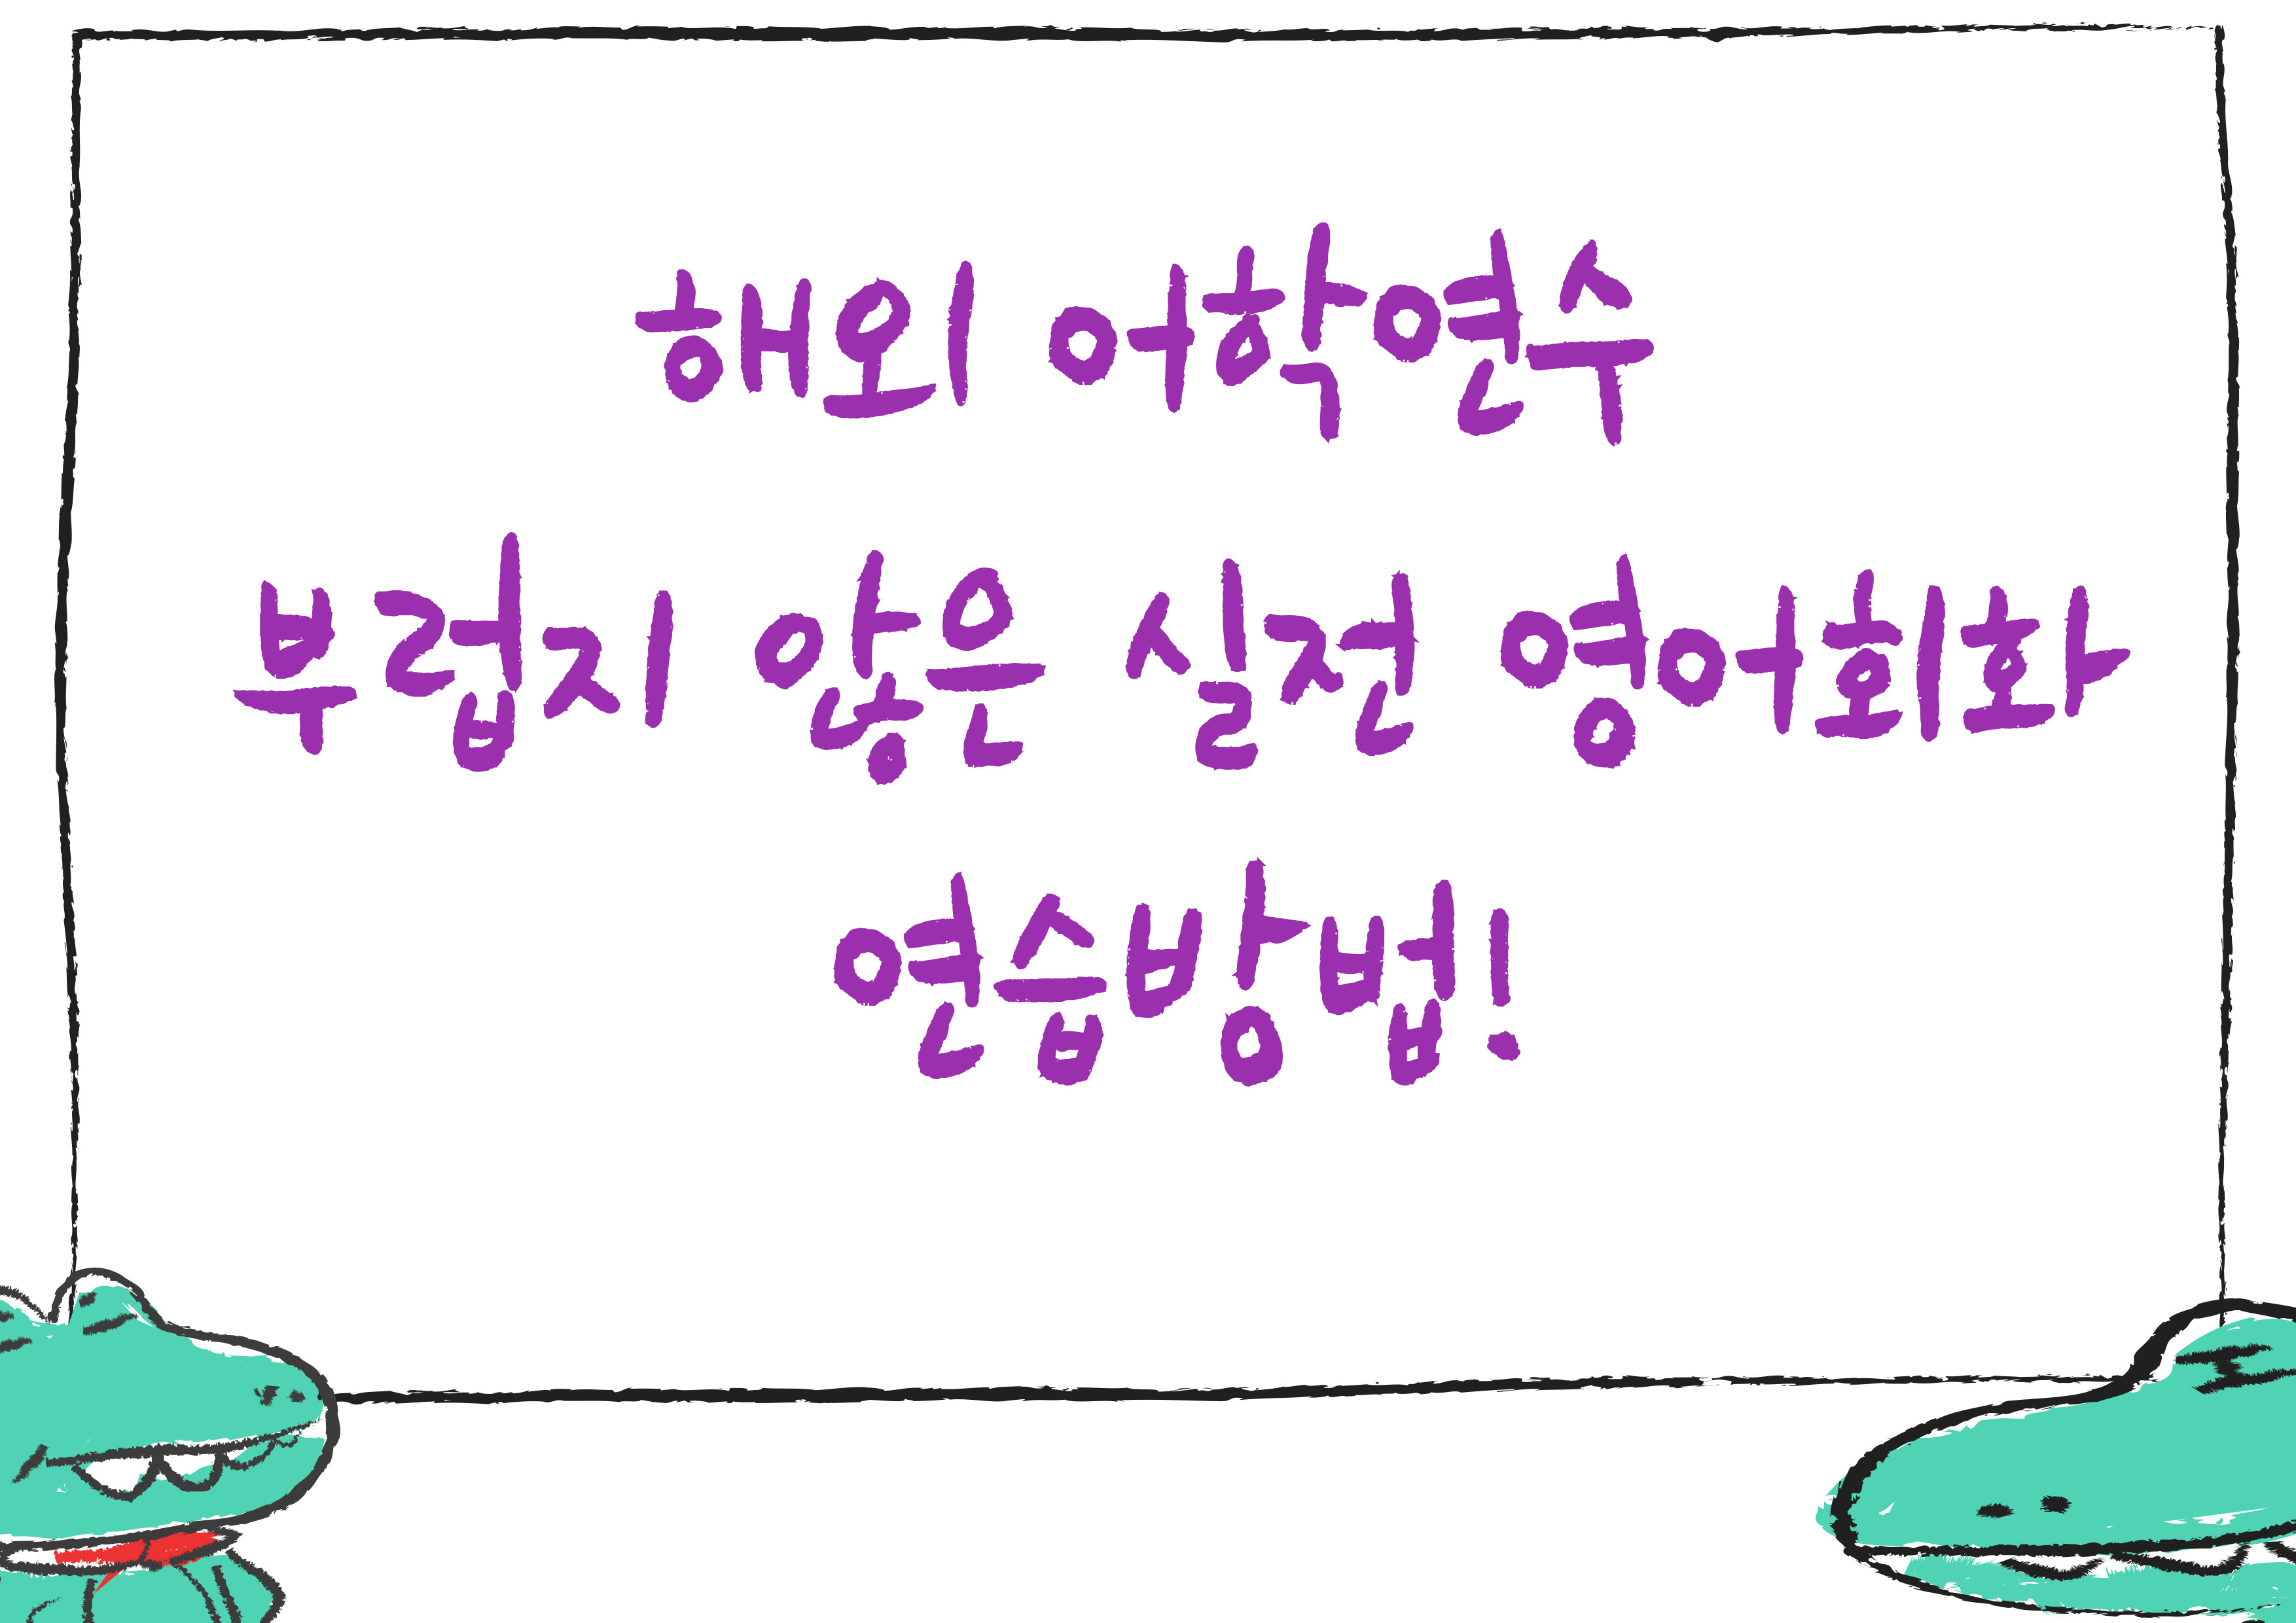 해외 어학연수
부럽지 않은 실전 영어회화
연습방법!